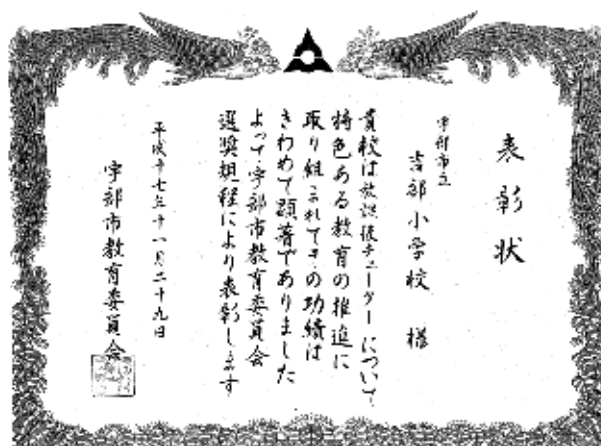 表彰状
宇部市立
吉部小学校 様
貴校は放課後チューターについて
特色ある教育の推進に
取り組まれてその功績は
きわめて顕著でありました
よって宇部市教育委員会
選奨規程により表彰します
平成十七年十一月二十九日
宇部市教育委員会